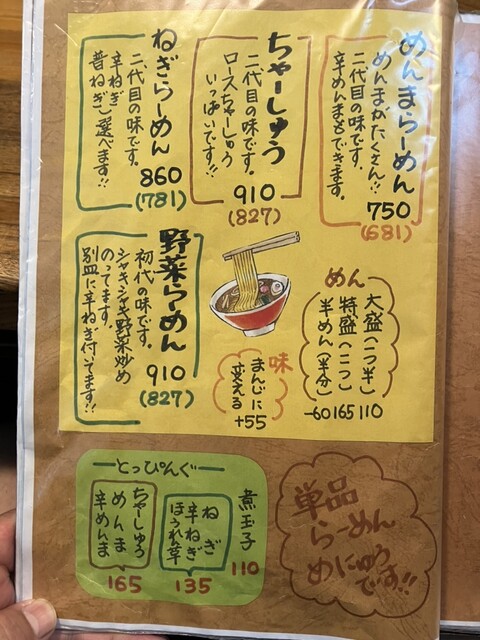 めんまらーめん
めんまがたくさん!!
二代目の味です。
辛めんまもできます。
750
(681)
ちゃーしゅう
二代目の味です。
ロースちゃーしゅう
いっぱいです!!
910
(827)
ねぎらーめん
二代目の味です。
辛ねぎ
普ねぎ
選べます!!
860
(781)
野菜らーめん
初代の味です。
シャキシャキ野菜炒め
のってます。
別皿に辛ねぎ付いてます!!
910
(827)
めん
大盛(一つ半)
110
特盛(二つ)
165
半めん(半分)
-60
味
まんじに
変える
+55
とっぴんぐ
煮玉子
110
ねぎ
辛ねぎ
ほうれん草
135
ちゃーしゅう
めんま
辛めんま
165
単品
らーめん
めにゅう
です!!